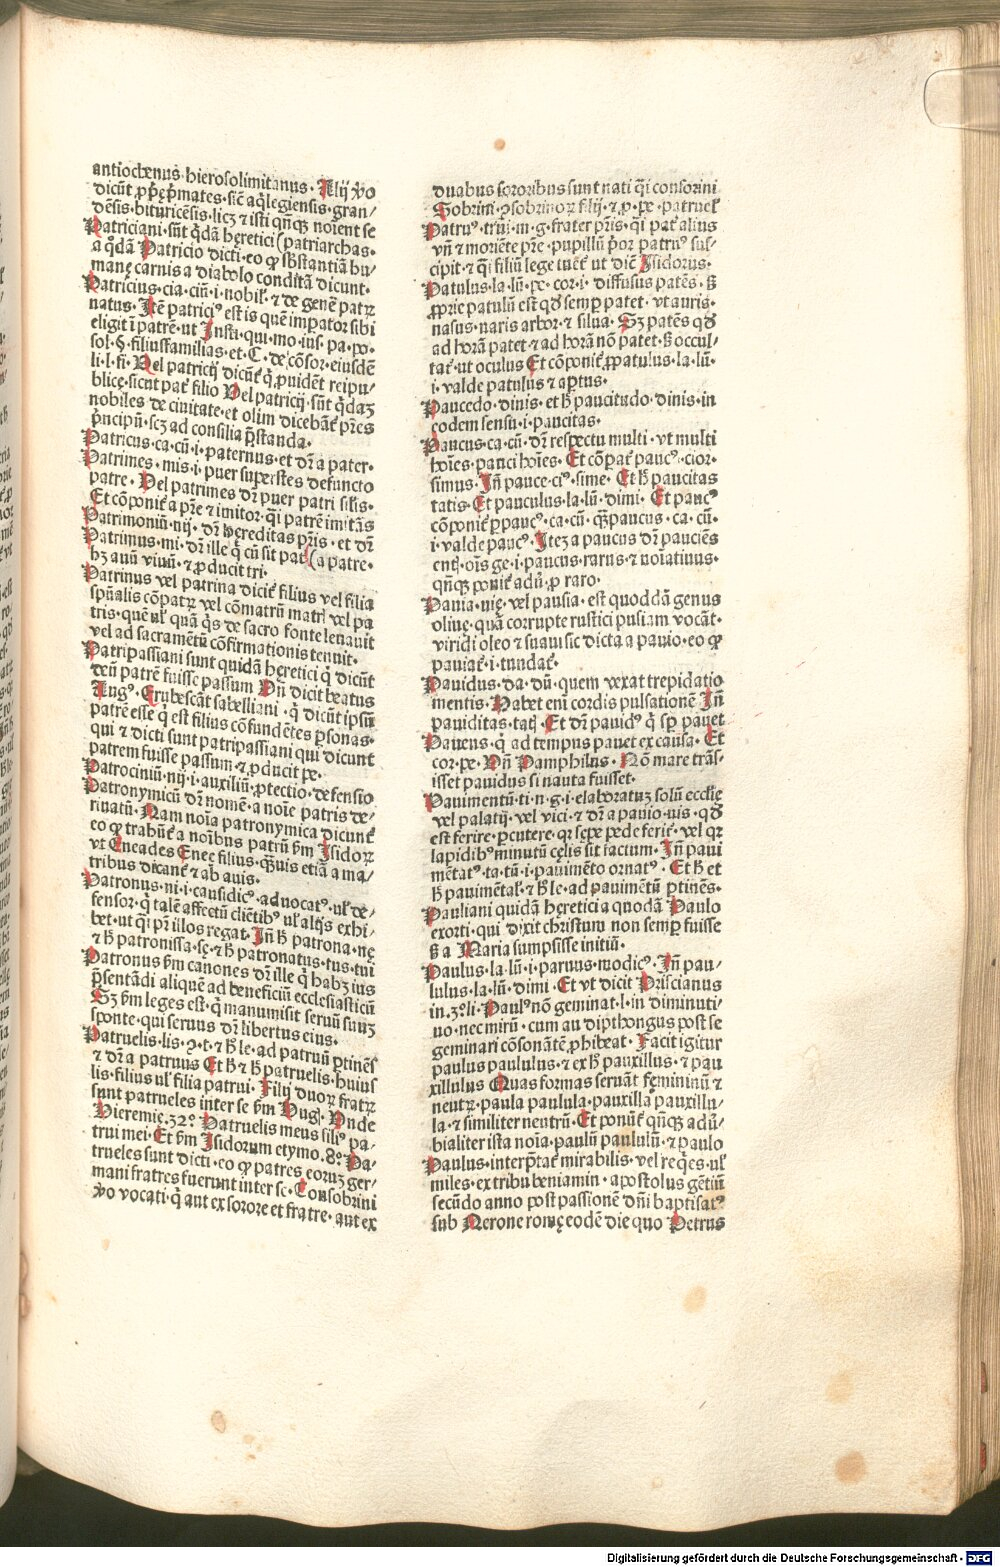 antiochenus hierosolimitanus· Alij ꝟo
dicũt ꝓpͥe ṗmates· sic̃ aq̃legiensis gran/
dẽsis· bituricẽsis· licꝫ ⁊ isti qñqꝫ noient̃ se
Patriciani· sũt q̃dã hęretici (patriarchas·
a q̃dã Patricio dicti· eo ꝙ sb̃stantiã hu/
manę carnis a diabolo conditã dicunt·
Patricius· cia· ciũ· i· nobil̃· ⁊ de genẽ patꝝ
natus· Itẽ patriciꝰ est is quẽ impator sibi
eligit ĩ patrẽ· ut Insti· qui· mo· ius· pa· po·
sol· §· filiusfamilias· et· C· de cõsor· eiusdẽ
li· l· fi· Vel patricij dicunt̃ q̃ ꝓuidẽt reipu/
blicę· sicut pat̃ filio Vel patricij sũt q̃daꝫ
nobiles de ciuitate· et olim dicebãt̃ pr̃es
p̃ncipũ· scꝫ ad consilia p̃standa·
Patricus· ca· cũ· i· paternus· et dr̃ a pater·
Patrimes· mis· i· puer superstes defuncto
patre· Vel patrimes dr̃ puer patri sil̃is·
Et cõponit̃ a pr̃e ⁊ imitor· q̃i patrẽ imitãs
Patrimoniũ· nij· dr̃ hereditas pr̃is· et dr̃
Patrimus· mi· dr̃ ille q̃ cũ sit pat̃ (a patre·
hꝫ auũ viuũ· ⁊ ꝓducit tri·
Patrinus vel patrina dicit̃ filius vel filia
spũalis cõpatꝝ vel cõmatrũ matr̃ vel pa
tris· quẽ ul̃ quã q̃s de sacro fonte leuauit
vel ad sacramẽtũ cõfirmationis tenuit·
Patripassiani sunt quidã hęretici q̃ dicũt
deũ patrẽ fuisse passum Vñ dicit beatus
Augꝰ· Erubescãt sabelliani· q̃ dicũt ipsũ
patrẽ esse q̃ est filius cõfundẽtes ꝑsonas·
qui ⁊ dicti sunt patripassiani qui dicunt
patrem fuisse passum ⁊ ꝓducit pe·
Patrociniũ· nij· i· auxiliũ· ꝓtectio· defensio
Patronymicũ dr̃ nomẽ· a noĩe patris de/
riuatũ· Nam noĩa patronymica dicunt̃
eo ꝙ trahũt̃ a noĩbus patrũ ẜm Isidoꝝ
vt Eneades Eneę filius· q̃uis etiã a ma/
tribus dicant̃ ⁊ ab auis·
Patronus· ni· i· causidicꝰ· aduocatꝰ· ul̃ de/
fensor· q̃ talẽ affectũ cliẽtibꝰ ul̃ alijs exhi/
bet· ut q̃i pr̃ illos regat· Iñ h̃ patrona· nę
⁊ h̃ patronissa· sę· ⁊ h̃ patronatus· tus· tui
Patronus ẜm canones dr̃ ille q̃ habꝫ ius
p̃sentãdi aliquẽ ad beneficiũ ecclesiasticũ
Sꝫ ẜm leges est· q̃ manumisit seruũ suuꝫ
sponte· qui seruus dr̃ libertus eius·
Patruelis· lis· ꝯ· t· ⁊ h̃ le· ad patruũ ꝑtinẽs
⁊ dr̃ a patruus Et h̃ ⁊ h̃ patruelis· huius
lis· filius ul̃ filia patrui· Filij duoꝝ fratꝝ
sunt patrueles inter se ẜm Hugͣ· Vnde
Hieremię· 32º· Patruelis meus filiꝰ pa/
trui mei· Et ẜm Isidorum etymo· 8º· Pa/
trueles sunt dicti· eo ꝙ patres eoruꝫ ger/
mani fratres fuerunt inter se· Consobrini
ꝟo vocati· q̃ aut ex sorore et fratre· aut ex
duabus sororibus sunt nati q̃i consorini
Sobrini· ꝯsobrinoꝝ filij· ⁊ ꝓ· pe· patruel̃
Patruꝰ· trui· m· g· frater pr̃is· q̃i pat̃ alius
vñ ⁊ moriẽte pr̃e· pupillũ p̃or patruꝰ sus/
cipit· ⁊ q̃i filiũ lege tuet̃· ut dic̃ Isidorus·
Patulus· la· lũ· pe· cor· i· diffusus patẽs· ß
ꝓprie patulũ est qð semꝑ patet· vt auris·
nasus· naris arbor· ⁊ silua· Sꝫ patẽs qð
ad horã patet· ⁊ ad horã nõ patet· ß occul/
tat̃· ut oculus Et cõponit̃ ꝓpatulus· la· lũ·
i· valde patulus ⁊ aꝑtus·
Paucedo· dinis· et h̃ paucitudo· dinis· in
eodem sensu· i· paucitas·
Paucus· ca· cũ· dr̃ respectu multi· vt multi
hoĩes· pauci hoĩes· Et cõpat̃ paucꝰ· cior·
simus· Iñ pauce· ciꝰ· sime· Et h̃ paucitas
tatis· Et pauculus· la· lũ· dimi· Et paucꝰ
cõponit̃ ꝑpaucꝰ· ca· cũ· q̃ꝫpaucus· ca· cũ·
i· valde paucꝰ· Iteꝫ a paucus dr̃ pauciẽs
entꝭ· oĩs ge· i· paucus· rarus· ⁊ noĩatiuus·
qñqꝫ ponit̃ adũ· ꝓ raro·
Pauia· uię· vel pausia· est quoddã genus
oliuę· quã corrupte rustici pusiam vocãt·
viridi oleo ⁊ suaui sic dicta a pauio· eo ꝙ
pauiat̃· i· tundat̃·
Pauidus· da· dũ· quem vexat trepidatio
mentis· Habet eni cordis pulsationẽ Iñ
pauiditas· tatꝭ· Et dr̃ pauidꝰ q̃ sꝑ pauet
Pauens· q̃ ad tempus pauet ex causa· Et
cor· pe· Vñ Pamphilus· Nõ mare trãs/
isset pauidus si nauta fuisset·
Pauimentũ· ti· n· g· i· elaboratuꝫ solũ ecclię
vel palatij· vel vici· ⁊ dr̃ a pauio· uis· qð
est ferire· ꝑcutere· qꝛ sępe pede ferit̃· vel qꝛ
lapidibꝰ minutũ cęlis sit factum· Iñ paui
mẽtatꝰ· ta· tũ· i· pauimẽto ornatꝰ· Et h̃ et
h̃ pauimẽtal̃· ⁊ h̃ le· ad pauimẽtũ ꝑtinẽs·
Pauliani quidã hęretici a quodã Paulo
exorti· qui dixit christum non semꝑ fuisse
ß a Maria sumpsisse initiũ·
Paulus· la· lũ· i· paruus· modicꝰ· Iñ pau/
lulus· la· lũ· dimi· Et vt dicit Priscianus
in· 3º· li· Paulꝰ nõ geminat· l· in diminuti/
uo· nec mirũ· cum au dipthongus post se
geminari cõsonãtẽ ꝓhibeat· Facit igitur
paulus paululus· ⁊ ex h̃ pauxillus· ⁊ pau
xillulus Quas formas seruãt fęmininũ ⁊
neutꝝ· paula paulula· pauxilla pauxillu/
la· ⁊ similiter neutrũ· Et ponit̃ qñqꝫ adũ/
bialiter ista noĩa· paulũ paululũ· ⁊ paulo
Paulus· interp̃tat̃ mirabilis· vel reqͥes· ul̃
miles· ex tribu beniamin· apostolus gẽtiũ
secũdo anno post passionẽ dñi baptisatꝰ
sub Nerone romę eodẽ die quo Petrus
Digitalisierung gefördert durch die Deutsche Forschungsgemeinschaft - DFG